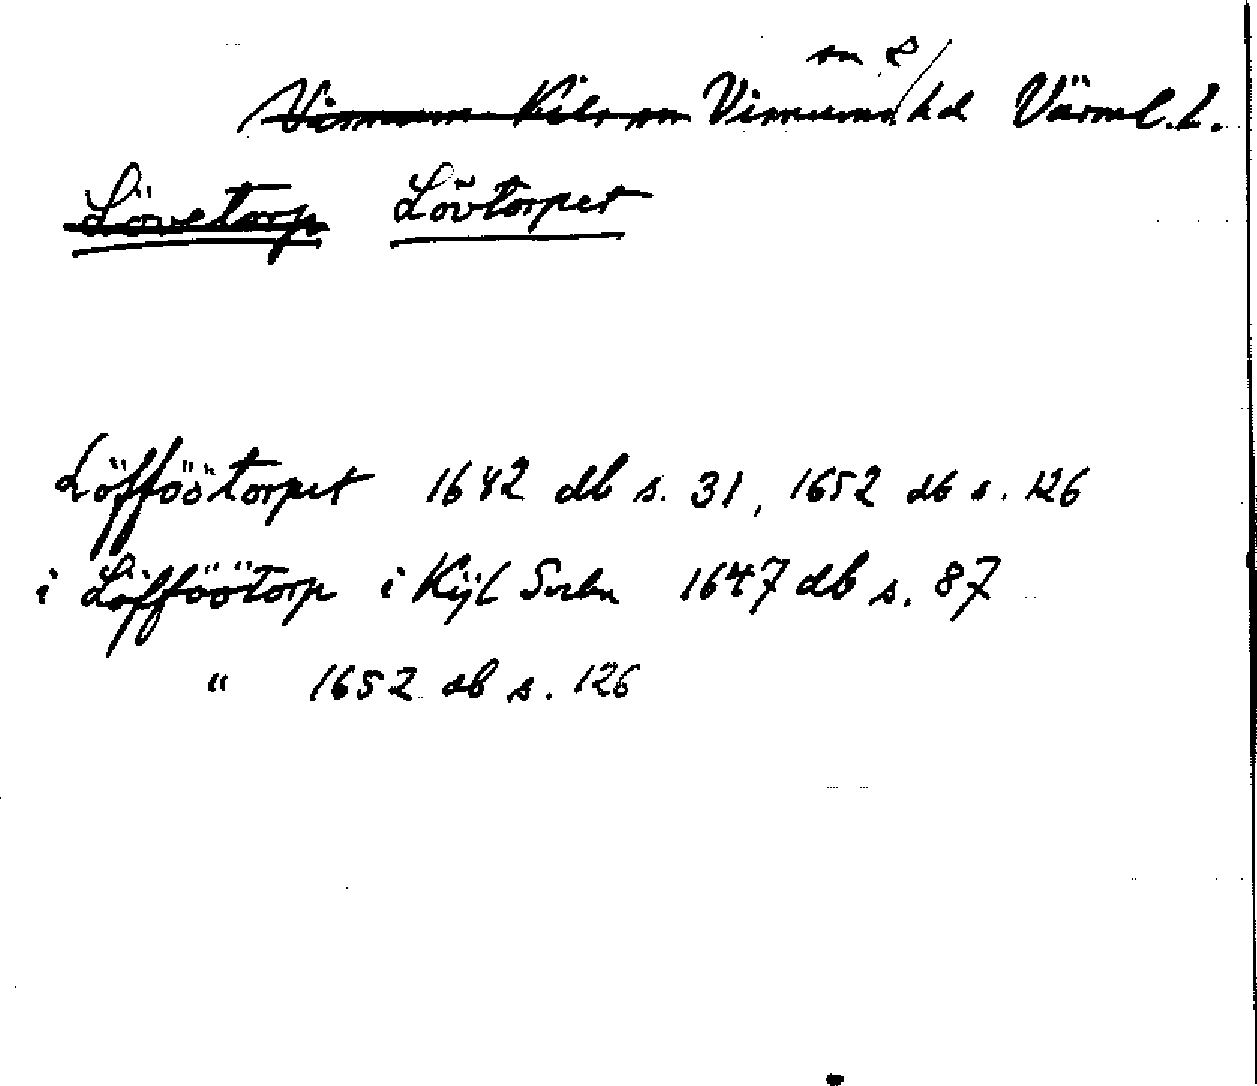 sn
Visnums hd Värml. L.
Lövetorp Lövtorpet
Löfföötorpet 1642 db s. 31, 1652 db s. 126
i Löfföötorp i Kijl Sochn 1647 db s. 87
" 1652 db s. 126